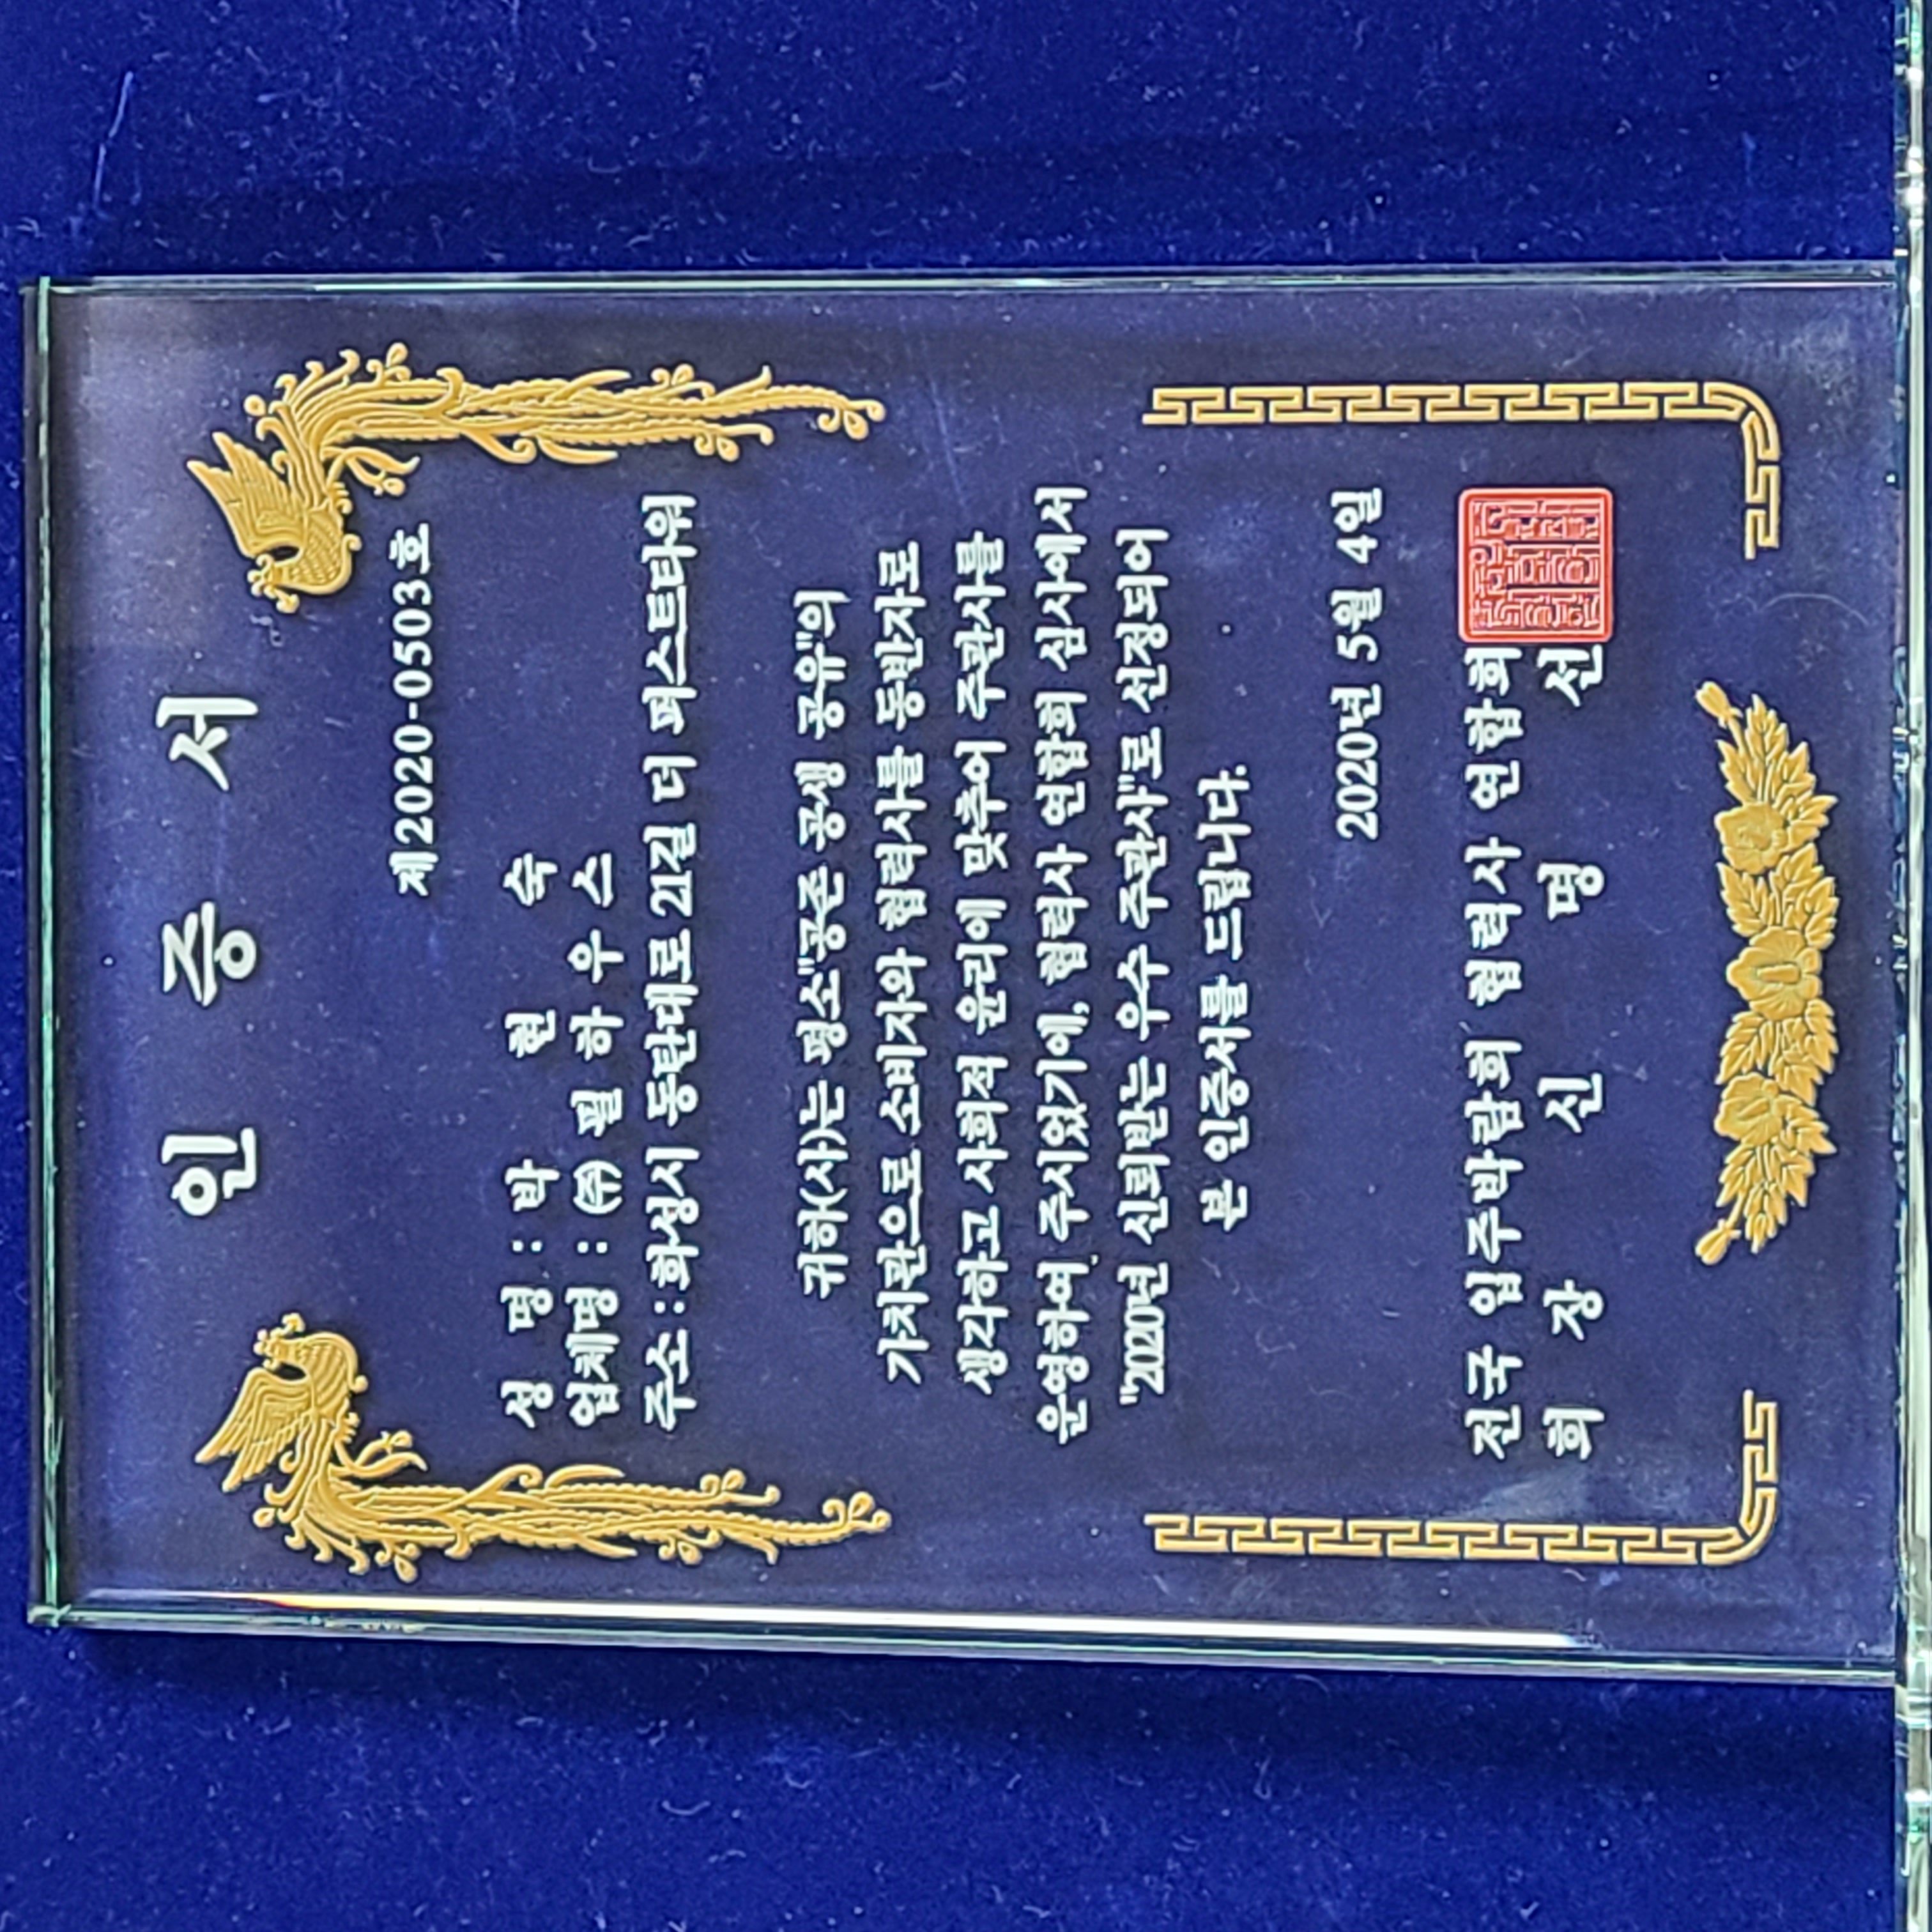 인 증 서
제2020-0503호
성 명 : 박 현 숙
업체명 : ㈜ 필 하 우 스
주소 : 화성시 동탄대로 21길 더 퍼스트타워
귀하(사)는 평소"공존 공생 공유"의
가치관으로 소비자와 협력사를 동반자로
생각하고 사회적 윤리에 맞추어 주관사를
운영하여 주시었기에, 협력사 연합회 심사에서
"2020년 신뢰받는 우수 주관사"로 선정되어
본 인증서를 드립니다.
2020년 5월 4일
전국 입주박람회 협력사 연합회
회 장 신 명 선